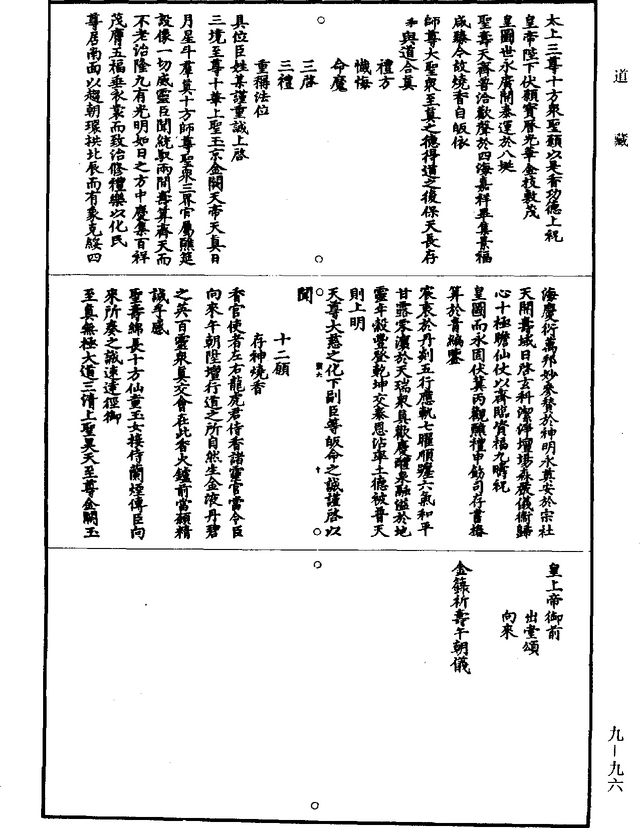 道藏
太上三尊十方衆聖願以是香功德上祝
皇帝陛下伏願寶曆光華金枝敷茂
皇圖世永廣開泰運於八埏
聖壽天齊普洽歡聲於四海嘉祥畢集景福
咸臻今故燒香自皈依
師尊大聖衆至真之德得道之後保天長存
與道合真
禮方
懺悔
命魔
三啓
三禮
重稱法位
具位臣姓某謹重誠上啓
三境至尊十華上聖玉京金闕天帝天真日
月星斗羣真十方師尊聖衆三界官屬醮筵
設像一切威靈臣聞統馭兩間壽算齊天而
不老治隆九有光明如日之方中慶集百祥
茂膺五福垂衣裳而致治修禮樂以化民
尊居南面以趨朝環拱北辰而有象克綏四
海慶衍萬邦妙參贊於神明永奠安於宗社
天開壽域日啓玄科潔淨壇場森嚴儀衛歸
心十極瞻仙仗以齊臨資福九霄祝
皇圖而永固伏冀丙觀醮禮申飭司存書椿
算於青編鑒
宸衷於丹剡五行應軌七曜順躔六氣和平
甘露零瀼於天瑞衆真歡慶醴泉融溢於地
靈年穀豐登乾坤交泰恩沾率土德被普天
則上明
天尊大慈之化下副臣等皈命之誠謹啓以
聞
十二願
存神燒香
香官使者左右龍虎君侍香諸靈官當令臣
向來午朝陞壇行道之所自然生金液丹碧
之英百靈衆真交會在此香火鑪前當願精
誠孚感
聖壽綿長十方仙童玉女接侍蘭煙傳臣向
來所奏之誠速達徑御
至真無極大道三清上聖昊天至尊金闕玉
皇上帝御前
出堂頌
向來
金籙祈壽午朝儀
九-九六